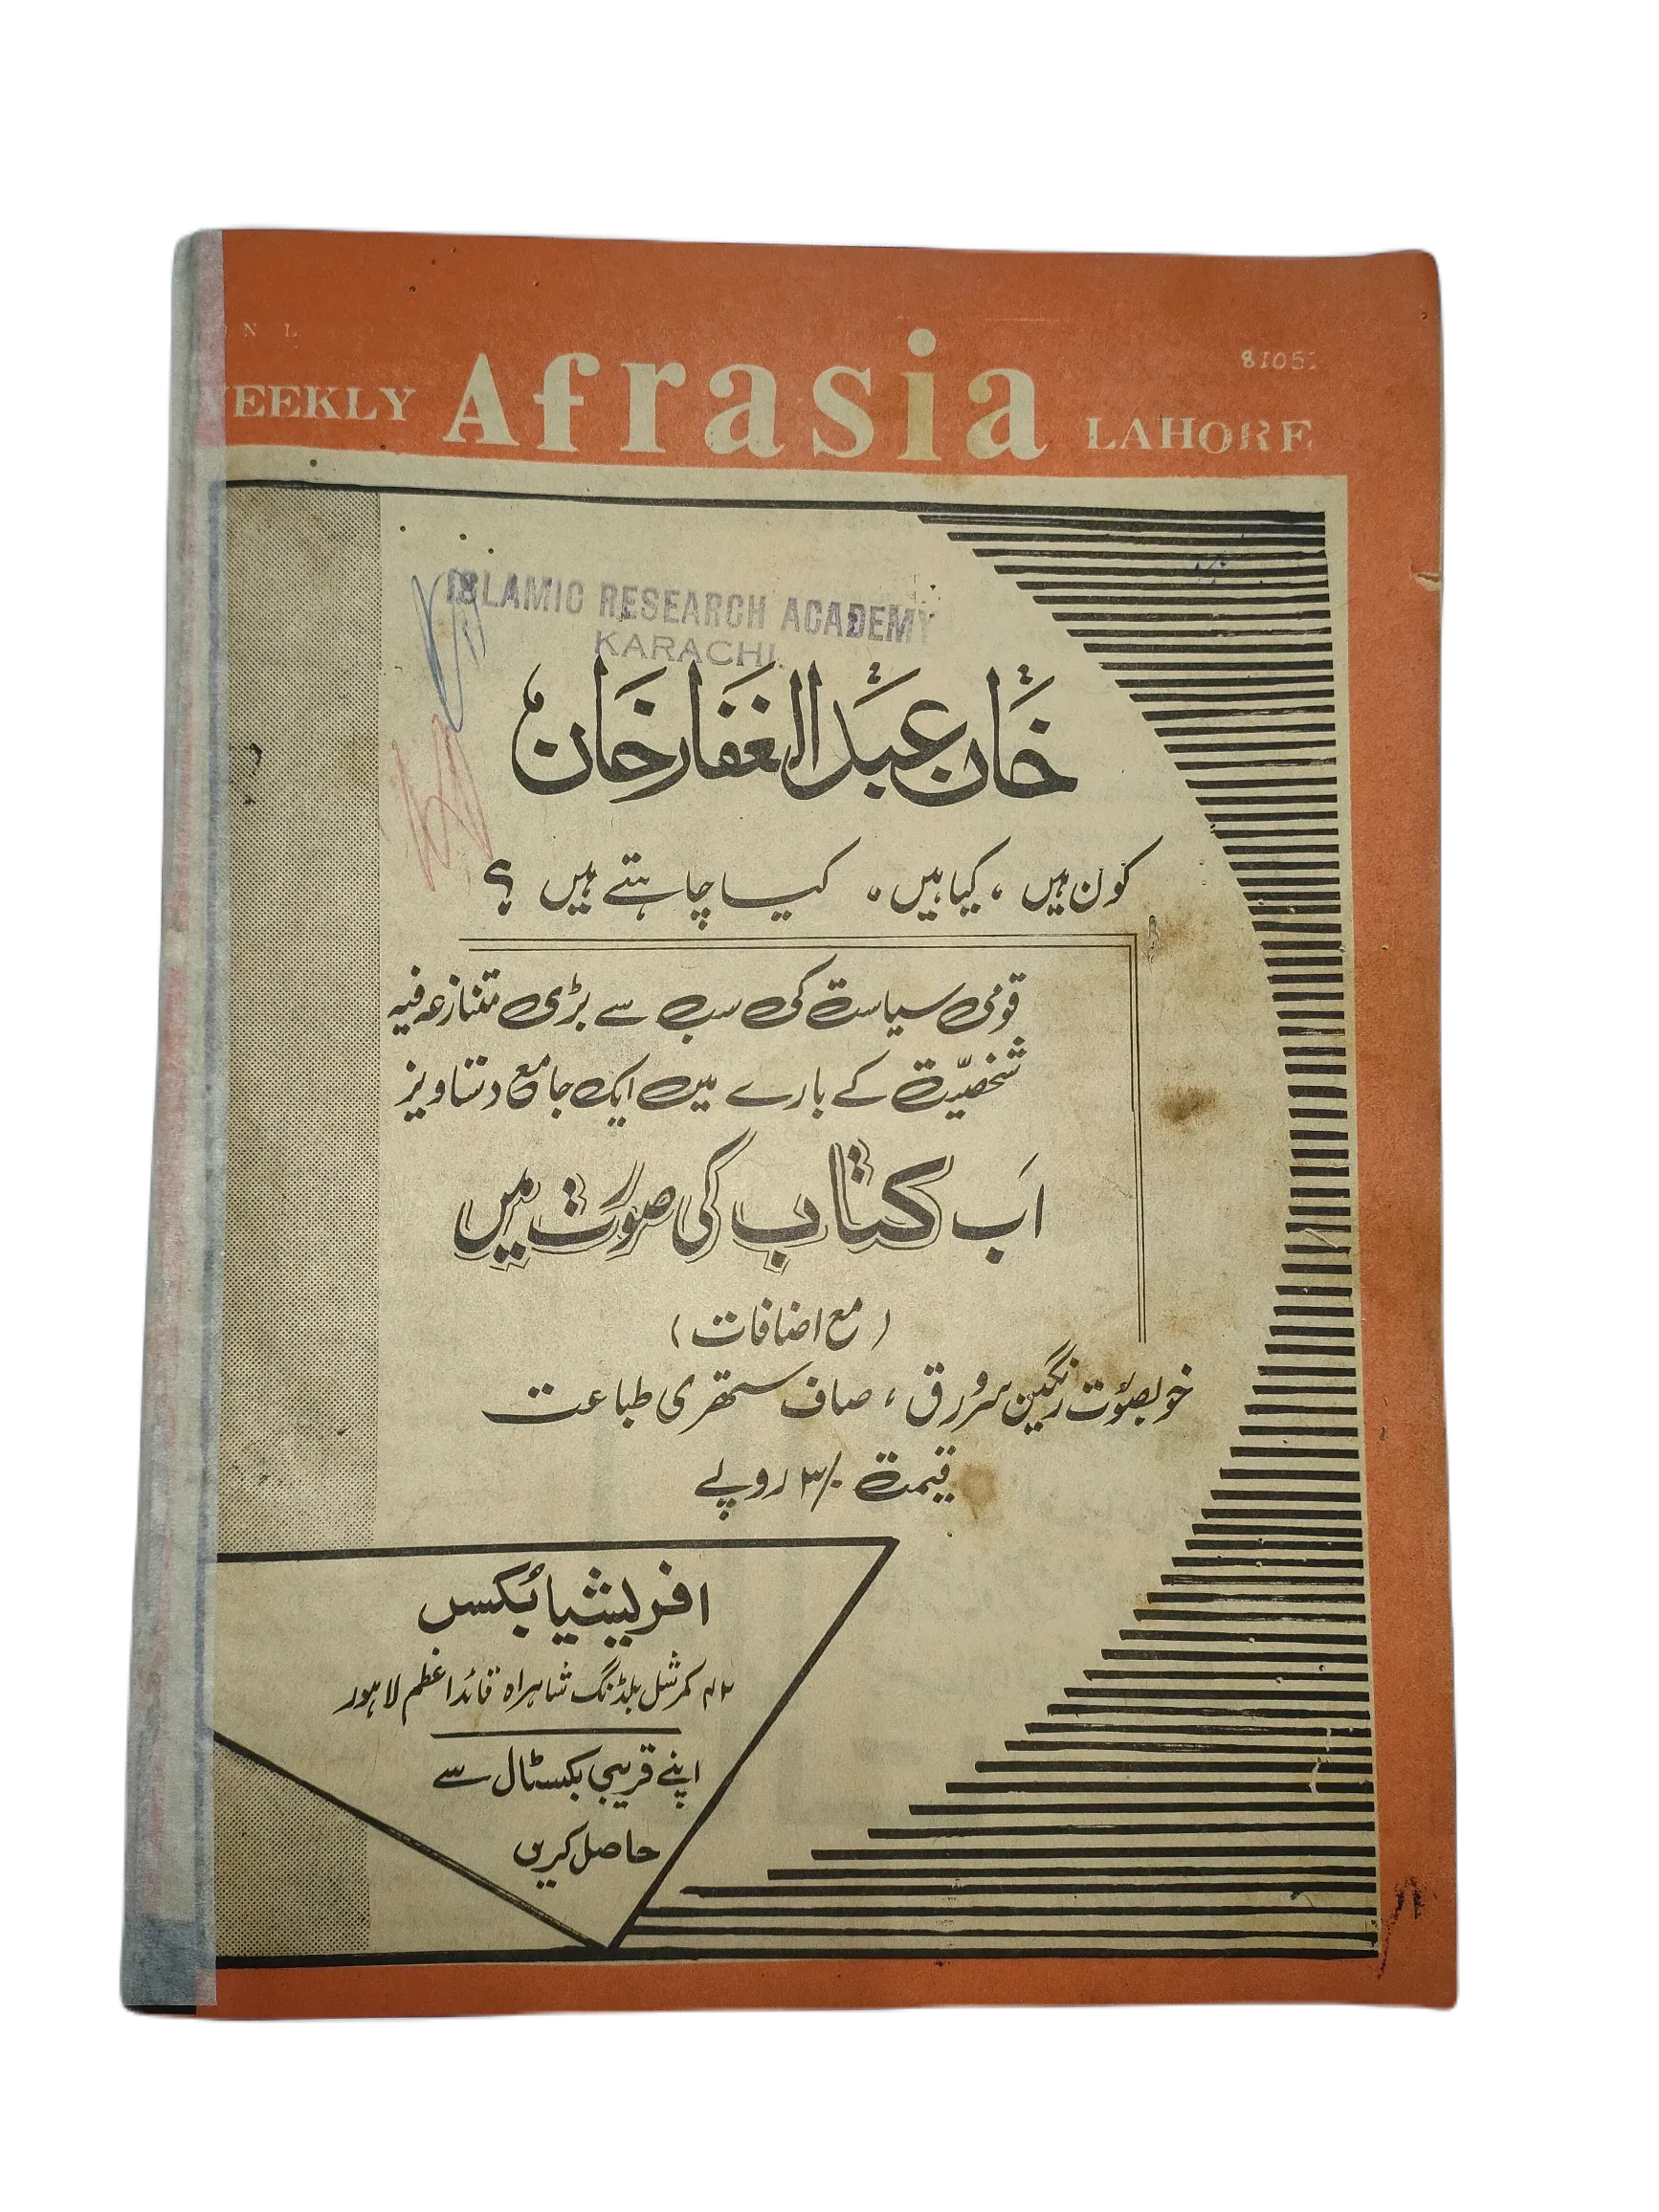 N L
WEEKLY Afrasia LAHORE
8105
ISLAMIC RESEARCH ACADEMY
KARACHI.
خان عبدالغفار خان
کون ہیں ، کیا ہیں ، کیا چاہتے ہیں ؟
قومی سیاست کی سب سے بڑی متنازعہ فیہ
شخصیّت کے بارے میں ایک جامع دستاویز
اَب کتاب کی صورت میں
( مع اضافات )
خوبصورت رنگین سرورق ، صاف ستھری طباعت
قیمت ۳/۰ روپے
افریشیا بُکس
کمرشل بلڈنگ شاہراہ قائداعظم لاہور
اپنے قریبی بکسٹال سے
حاصل کریں